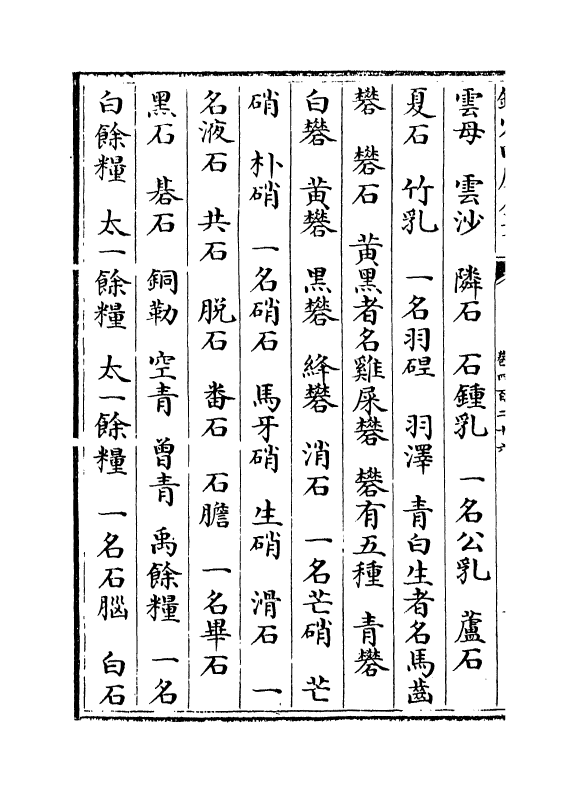 雲母　雲沙　隣石　石鍾乳　一名公乳　蘆石
夏石　竹乳　一名羽碮　羽澤　青白生者名馬齒
礬　礬石　黄黑者名雞屎礬　礬有五種　青礬
白礬　黄礬　黑礬　絳礬　消石　一名芒硝　芒
硝　朴硝　一名硝石　馬牙硝　生硝　滑石　一
名液石　共石　脱石　番石　石膽　一名畢石
黑石　碁石　銅勒　空青　曾青　禹餘糧　一名
白餘糧　太一餘糧　太一餘糧　一名石腦　白石
卷四百二十六